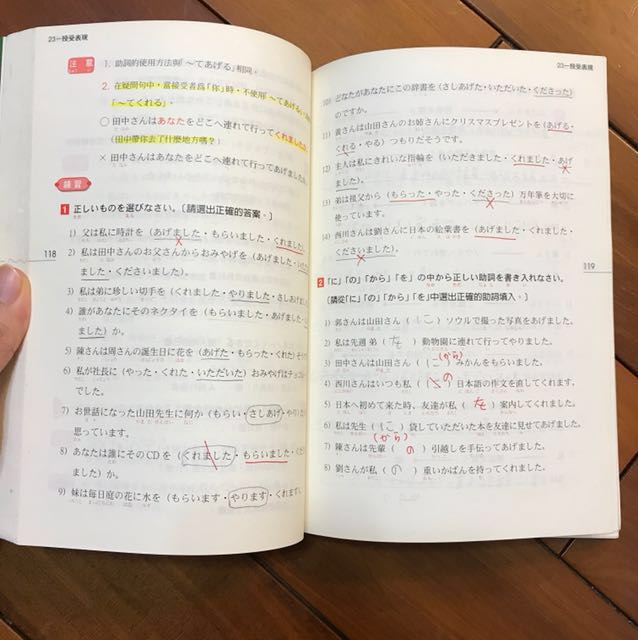 23—授受表現
注意
1. 助詞的使用方法與「～てあげる」相同。
2. 在疑問句中，當接受者為「你」時，不使用「～てあげる」
「～てくれる」。
○ 田中さんはあなたをどこへ連れて行ってくれました
(田中帶你去了什麼地方嗎？)
× 田中さんはあなたをどこへ連れて行ってあげました
練習
1 正しいものを選びなさい。〔請選出正確的答案。〕
1) 父は私に時計を (あげました・もらいました・くれました)
2) 私は田中さんのお父さんからおみやげを (あげました・いただ
ました・くださいました)。
3) 私は弟に珍しい切手を (くれました・やりました・さしあげ
4) 誰があなたにそのネクタイを (もらいました・あげました・
ました) か。
5) 陳さんは周さんの誕生日に花を (あげた・もらった・くれた)
6) 私が社長に (やった・くれた・いただいた) おみやげはチョコ
でした。
7) お世話になった山田先生に何か (もらい・さしあげ・やり)
思っています。
8) あなたは誰にそのCDを (くれました・もらいました・くだ
ました) か。
9) 妹は毎日庭の花に水を (もらいます・やります・くれます)
118
23—授受表現
10) どなたがあなたにこの辞書を (さしあげた・いただいた・くださった)
のですか。
11) 黄さんは山田さんのお姉さんにクリスマスプレゼントを (あげる・
くれる・やる) つもりだそうです。
12) 主人は私にきれいな指輪を (いただきました・くれました・あげ
ました)。
13) 弟は祖父から (もらった・やった・くださった) 万年筆を大切に
使っています。
14) 西川さんは劉さんに日本の絵葉書を (あげました・くれました・
くださいました)。
119
2 「に」「の」「から」「を」の中から正しい助詞を書き入れなさい。
(請從「に」「の」「から」「を」中選出正確的助詞填入。)
1) 郭さんは山田さん ( に ) ソウルで撮った写真をあげました。
2) 私は先週弟 ( を ) 動物園に連れて行ってやりました。
(から)
3) 田中さんは山田さん ( に ) みかんをもらいました。
4) 西川さんはいつも私 ( の ) 日本語の作文を直してくれます。
5) 日本へ初めて来た時、友達が私 ( を ) 案内してくれました。
6) 私は先生 ( に ) 貸していただいた本を友達に見せてあげました。
(から)
7) 陳さんは先輩 ( の ) 引越しを手伝ってあげました。
8) 劉さんが私 ( の ) 重いかばんを持ってくれました。